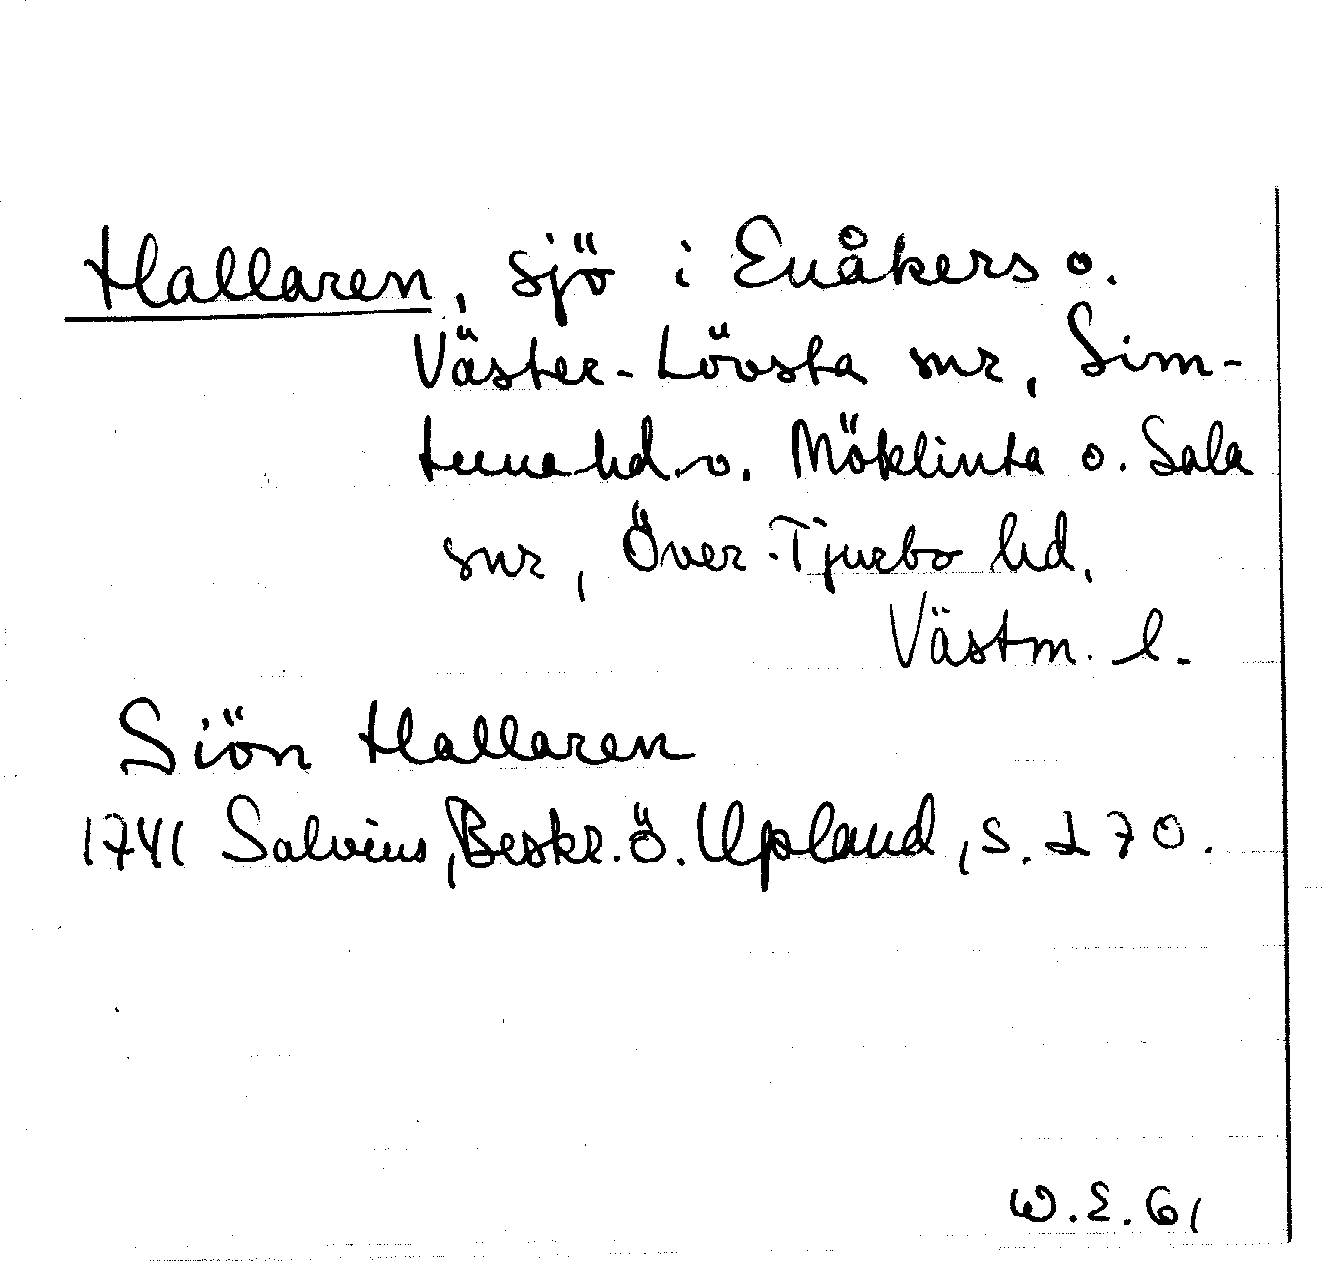 Hallaren, sjö i Enåkers o.
Väster-Lövsta snr, Sim-
tuna hd. o. Möklinta o. Sala
snr, Över-Tjurbo hd,
Västm. l.
Siön Hallaren
1741 Salvius, Beskr. ö. Upland, s. 270.
W.E. 61